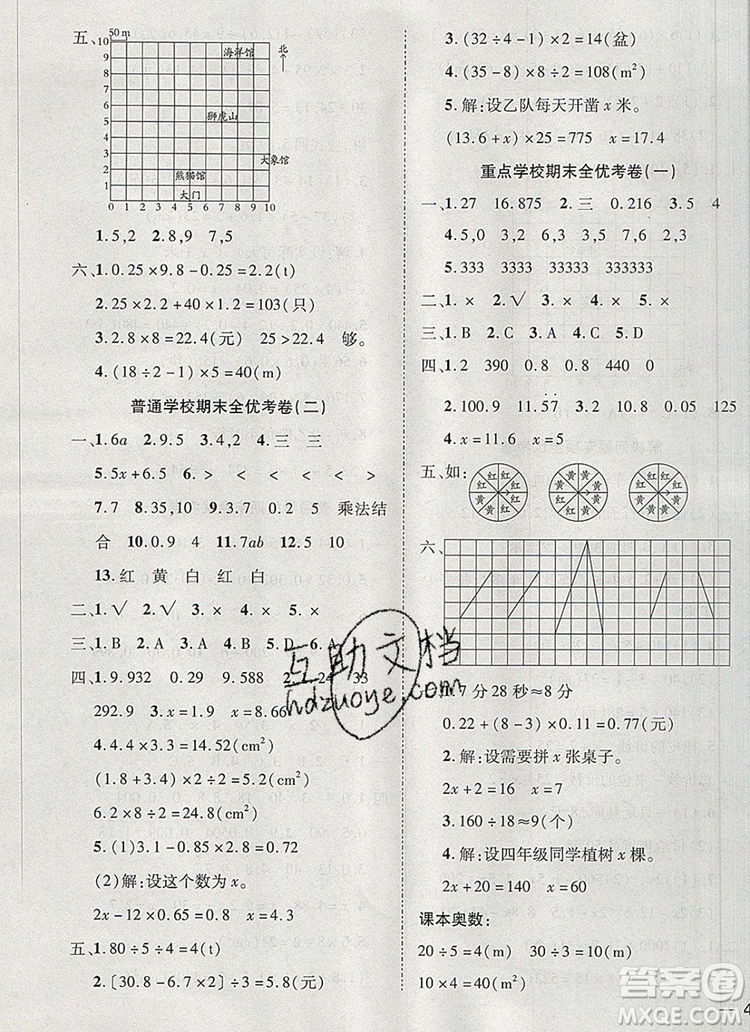 五、
50 m
10
9
8
7
6
5
4
3
2
1
0 1 2 3 4 5 6 7 8 9 10
海洋馆
北
狮虎山
大象馆
熊猫馆
大门
1.5,2 2.8,9 7,5
六、1.0.25×9.8-0.25=2.2(t)
2.25×2.2+40×1.2=103(只)
3.2.8×8=22.4(元) 25>22.4 够。
4.(18÷2-1)×5=40(m)
普通学校期末全优考卷(二)
一、1.6a 2.9.5 3.4,2 4.三 三
5.5x+6.5 6.> < < > <
7.7 8.35,10 9.3.7 0.2 5 乘法结
合 10.0.9 11.7ab 12.5 10
13.红 黄 白 红 白
二、1.√ 2.√ 3.× 4.× 5.×
三、1.B 2.B 3.A 4.A 5.
四、1.9.932 0.29 9.588 2. 33
292.9 3.x=2.7 x=8.6
4.4.4×3.3=14.52(cm²)
(1.8+3.4)×2÷2=5.2(cm²)
6.2×8÷2=24.8(cm²)
5.(1)3.1-0.85×2.8=0.72
(2)解:设这个数为x。
2x-12×0.6=0.6 x=3.9
五、1.80÷5÷4=4(t)
2.〔30.8-6.7×2〕÷3=5.8(元)
3.(32÷4-1)×2=14(盆)
4.(35-8)×8÷2=108(m²)
5.解:设乙队每天开凿x米。
(13.6+x)×25=775 x=17.4
重点学校期末全优考卷(一)
一、1.27 16.875 2.三 0.216 3.5 4
4.0.5 0.3 3,5 3,3 5,3
5.333 3333 33333 333333
二、1.× 2.√ 3.× 4.× 5.×
三、1.B 2.C 3.A 4.B 5.C
四、1.2 390 0.8 0.8 440 0
2.100.9 11.57 3.2 10.8 0.05 125
4.x=11.6 x=5
五、如:
红 黄 红 黄 红 黄 红 黄
六、
7分28秒≈8分
0.22+(8-3)×0.11=0.77(元)
2.解:设需要拼x张桌子。
2x+2=16 x=7
3.160÷18≈9(个)
4.解:设四年级同学植树x棵。
2x+20=140 x=60
课本奥数:
20÷5=4(m) 30÷10=3(m)
10×4=40(m²)
互助文档
hdzuoye.com
答案圈
MXQE.COM
4